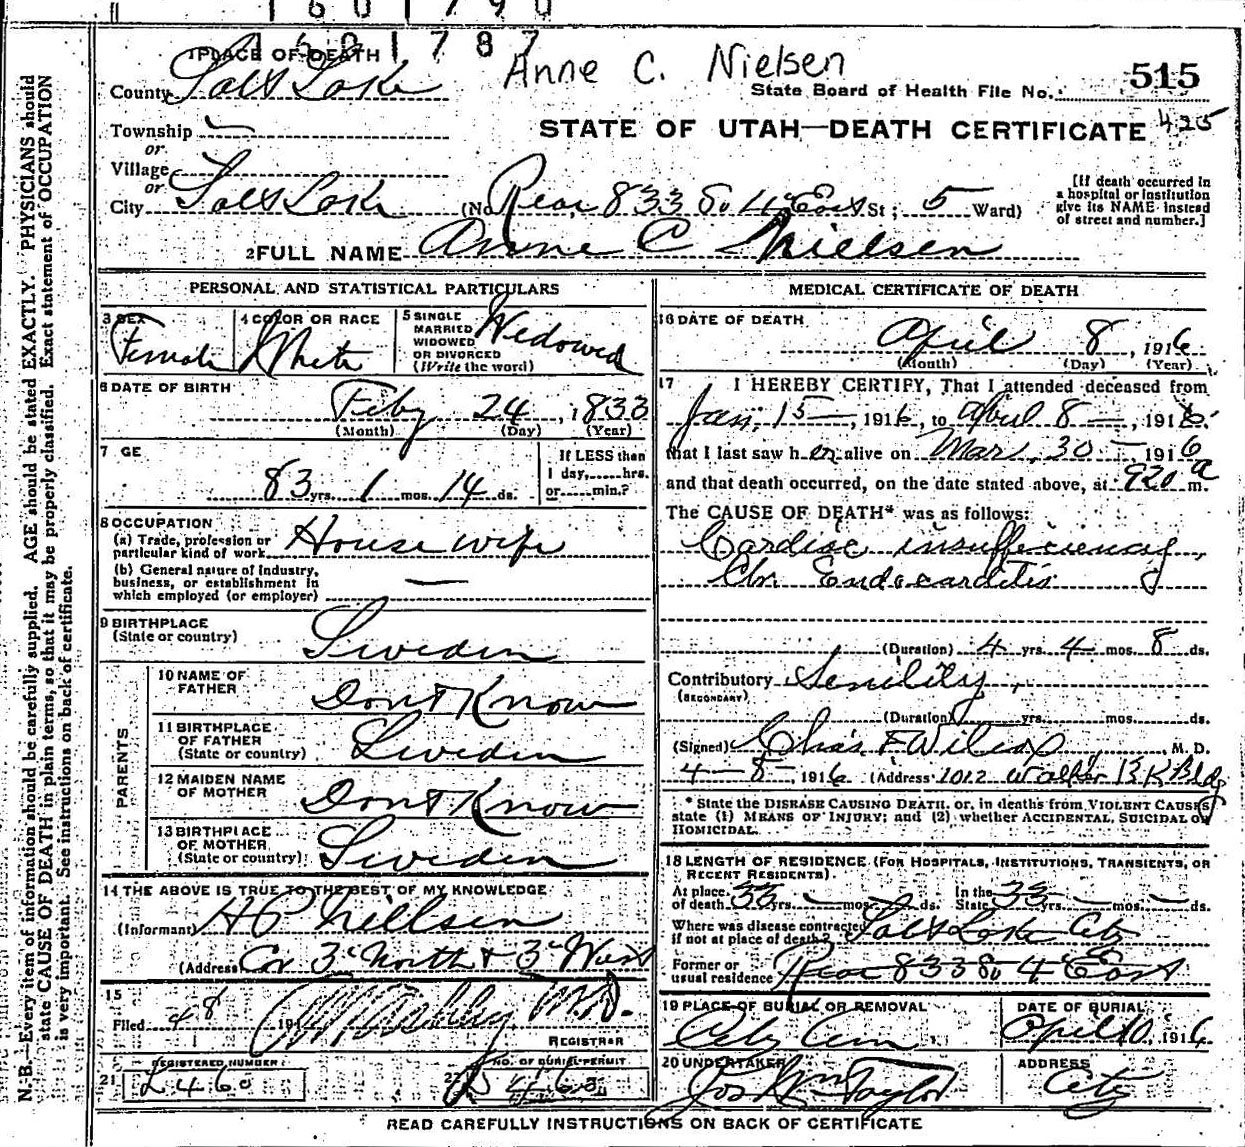 1601787
Anne C. Nielsen
1 PLACE OF DEATH
County Salt Lake
State Board of Health File No. 515
Township
or
STATE OF UTAH—DEATH CERTIFICATE 425
Village
or
City Salt Lake (No. Rear 833 So 4 East St; 5 Ward)
[If death occurred in
a hospital or institution
give its NAME instead
of street and number.]
2 FULL NAME Anne C Nielsen
PERSONAL AND STATISTICAL PARTICULARS
3 SEX
Female
4 COLOR OR RACE
White
5 SINGLE
MARRIED
WIDOWED
OR DIVORCED
(Write the word)
Widowed
6 DATE OF BIRTH
Feby 24, 1833
(Month) (Day) (Year)
7 GE
83 yrs. 1 mos. 14 ds.
If LESS than
1 day, hrs.
or min.?
8 OCCUPATION
(a) Trade, profession or
particular kind of work House wife
(b) General nature of industry,
business, or establishment in
which employed (or employer) —
9 BIRTHPLACE
(State or country) Sweden
PARENTS
10 NAME OF
FATHER Dont Know
11 BIRTHPLACE
OF FATHER
(State or country) Sweden
12 MAIDEN NAME
OF MOTHER Dont Know
13 BIRTHPLACE
OF MOTHER
(State or country) Sweden
14 THE ABOVE IS TRUE TO THE BEST OF MY KNOWLEDGE
(Informant) H P Nillsen
(Address) Cor 3d North & 3d West
15
Filed 4 8 191 M.D.
REGISTRAR
REGISTERED NUMBER
21 L460
NO. OF BURIAL PERMIT
22
MEDICAL CERTIFICATE OF DEATH
16 DATE OF DEATH
April 8, 1916
(Month) (Day) (Year)
17 I HEREBY CERTIFY, That I attended deceased from
Jan, 15 —, 1916, to April 8 —, 1916.
that I last saw her alive on Mar, 30 — 1916
and that death occurred, on the date stated above, at 920 a m.
The CAUSE OF DEATH* was as follows:
Cardiac insufficiency,
Chr. Endocarditis
(Duration) 4 yrs. 4 mos. 8 ds.
Contributory Senility,
(SECONDARY)
(Duration) yrs. mos. ds.
(Signed) Chas F Wilcox, M. D.
4—8—, 1916 (Address) 1012 Walker BK Bldg
* State the DISEASE CAUSING DEATH, or, in deaths from VIOLENT CAUSES,
state (1) MEANS OF INJURY; and (2) whether ACCIDENTAL, SUICIDAL OR
HOMICIDAL.
18 LENGTH OF RESIDENCE (FOR HOSPITALS, INSTITUTIONS, TRANSIENTS, OR
RECENT RESIDENTS).
At place
of death 33 yrs. — mos. — ds.
In the
State 33 yrs. — mos. — ds.
Where was disease contracted
if not at place of death? Salt Lake City
Former or
usual residence Rear 833 So 4 East
19 PLACE OF BURIAL OR REMOVAL
City Cem
DATE OF BURIAL
April 10, 1916
20 UNDERTAKER
Jos Wm Taylor
ADDRESS
City
READ CAREFULLY INSTRUCTIONS ON BACK OF CERTIFICATE
N. B.—Every item of information should be carefully supplied. AGE should be stated EXACTLY. PHYSICIANS should
state CAUSE OF DEATH in plain terms, so that it may be properly classified. Exact statement of OCCUPATION
is very important. See instructions on back of certificate.